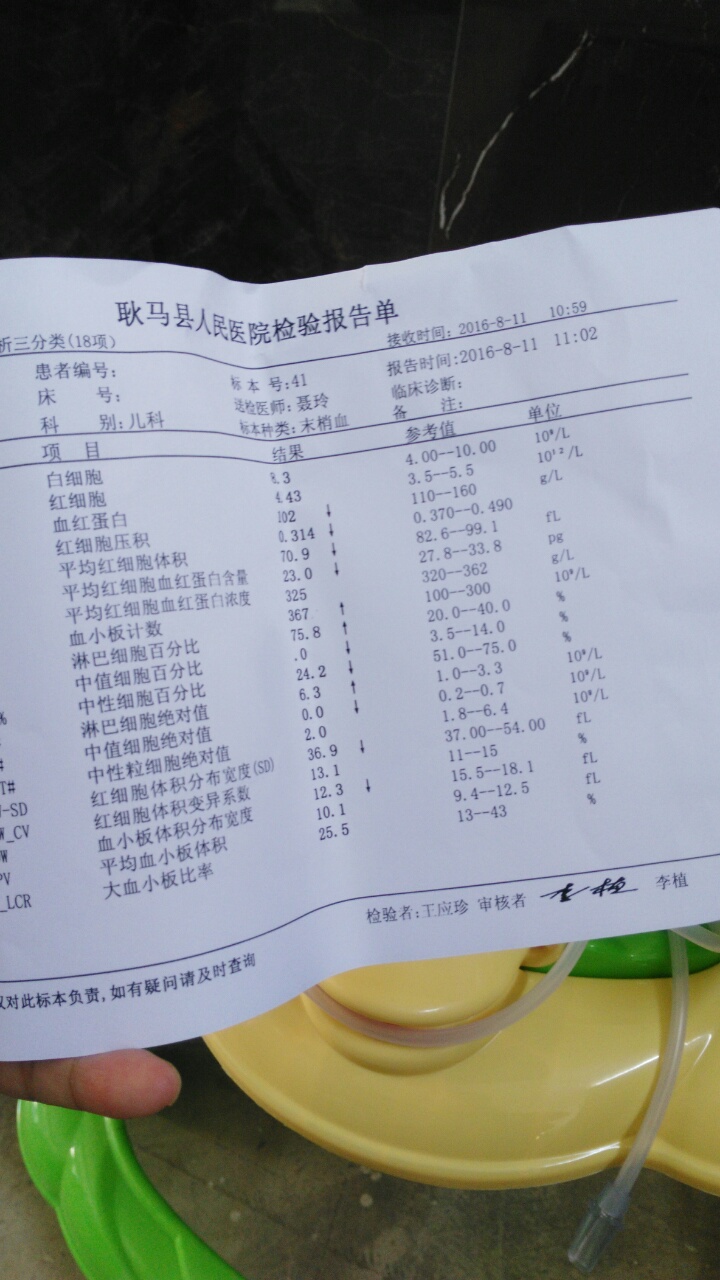 耿马县人民医院检验报告单
析三分类(18项) 接收时间: 2016-8-11 10:59
患者编号: 标本号:41 报告时间:2016-8-11 11:02
床 号: 送检医师: 聂玲 临床诊断:
科 别:儿科 标本种类: 末梢血 备 注:
项 目 结果 参考值 单位
白细胞 8.3 4.00--10.00 10⁹/L
红细胞 4.43 3.5--5.5 10¹²/L
血红蛋白 102 ↓ 110--160 g/L
红细胞压积 0.314 ↓ 0.370--0.490
平均红细胞体积 70.9 ↓ 82.6--99.1 fL
平均红细胞血红蛋白含量 23.0 ↓ 27.8--33.8 pg
平均红细胞血红蛋白浓度 325 320--362 g/L
血小板计数 367 ↑ 100--300 10⁹/L
淋巴细胞百分比 75.8 ↑ 20.0--40.0 %
中值细胞百分比 .0 ↓ 3.5--14.0 %
中性细胞百分比 24.2 ↓ 51.0--75.0 %
% 淋巴细胞绝对值 6.3 ↑ 1.0--3.3 10⁹/L
中值细胞绝对值 0.0 ↓ 0.2--0.7 10⁹/L
# 中性粒细胞绝对值 2.0 1.8--6.4 10⁹/L
T# 红细胞体积分布宽度(SD) 36.9 ↓ 37.00--54.00 fL
-SD 红细胞体积变异系数 13.1 11--15 %
W_CV 血小板体积分布宽度 12.3 ↓ 15.5--18.1 fL
W 平均血小板体积 10.1 9.4--12.5 fL
PV 大血小板比率 25.5 13--43 %
_LCR
检验者:王应珍 审核者 李植 李植
对此标本负责,如有疑问请及时查询